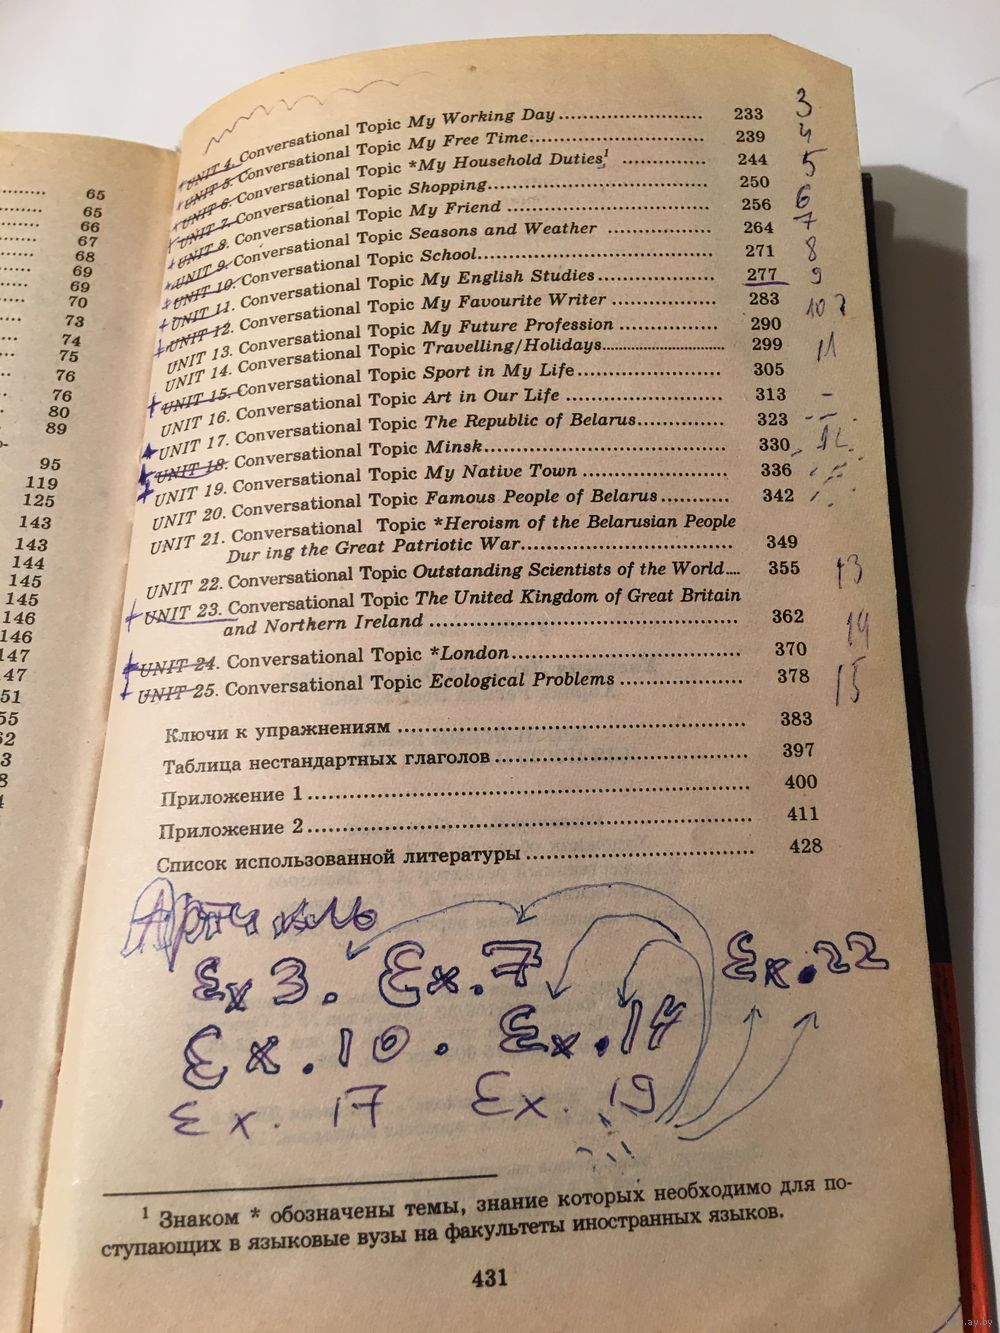 65
65
66
67
68
69
69
70
73
74
75
76
76
80
89
95
119
125
143
143
144
145
145
146
146
147
147
151
UNIT 4. Conversational Topic My Working Day ........................ 233 3
UNIT 5. Conversational Topic My Free Time.............................. 239 4
UNIT 6. Conversational Topic *My Household Duties¹ .............. 244 5
UNIT 7. Conversational Topic Shopping..................................... 250 6
UNIT 8. Conversational Topic My Friend .................................. 256 7
UNIT 9. Conversational Topic Seasons and Weather ................. 264 8
UNIT 10. Conversational Topic School........................................ 271 9
UNIT 11. Conversational Topic My English Studies .................... 277
UNIT 12. Conversational Topic My Favourite Writer .................. 283 10
UNIT 13. Conversational Topic My Future Profession ................. 290
UNIT 14. Conversational Topic Travelling/Holidays.............................. 299 11
UNIT 15. Conversational Topic Sport in My Life ........................ 305
UNIT 16. Conversational Topic Art in Our Life .......................... 313
UNIT 17. Conversational Topic The Republic of Belarus............... 323
UNIT 18. Conversational Topic Minsk......................................... 330 12
UNIT 19. Conversational Topic My Native Town ......................... 336
UNIT 20. Conversational Topic Famous People of Belarus ............ 342
UNIT 21. Conversational Topic *Heroism of the Belarusian People
Dur ing the Great Patriotic War..................................... 349
UNIT 22. Conversational Topic Outstanding Scientists of the World.... 355 13
UNIT 23. Conversational Topic The United Kingdom of Great Britain
and Northern Ireland .................................................... 362 14
UNIT 24. Conversational Topic *London....................................... 370
UNIT 25. Conversational Topic Ecological Problems ..................... 378 15
Ключи к упражнениям .......................................................... 383
Таблица нестандартных глаголов ........................................... 397
Приложение 1 ......................................................................... 400
Приложение 2 ......................................................................... 411
Список использованной литературы ....................................... 428
Артикль
Ex 3. Ex. 7 Ex. 22
Ex. 10. Ex. 14
Ex. 17 Ex. 19
¹ Знаком * обозначены темы, знание которых необходимо для по-
ступающих в языковые вузы на факультеты иностранных языков.
431